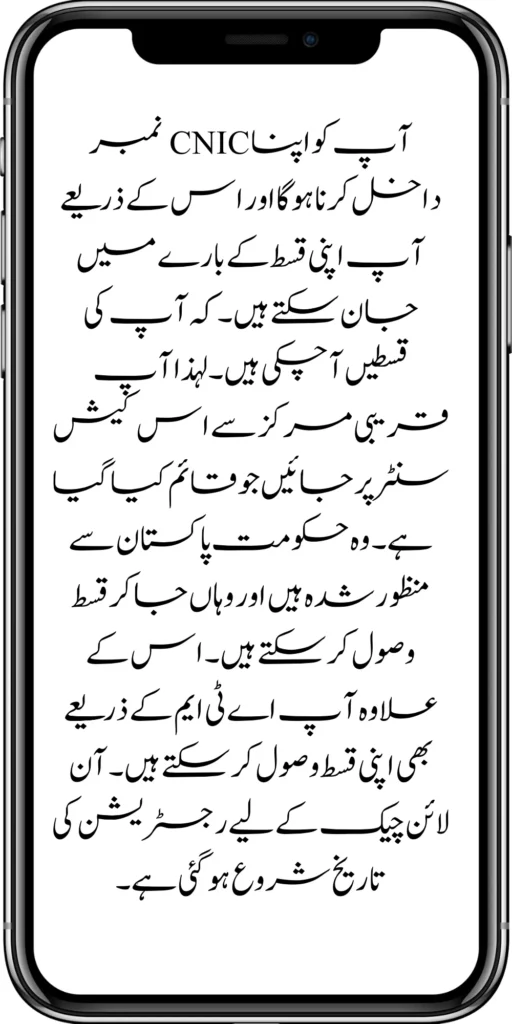 آپ کو اپنا CNIC نمبر
داخل کرنا ہوگا اور اس کے ذریعے
آپ اپنی قسط کے بارے میں
جان سکتے ہیں۔ کہ آپ کی
قسطیں آچکی ہیں۔ لہذا آپ
قریبی مرکز سے اس کیش
سنٹر پر جائیں جو قائم کیا گیا
ہے۔ وہ حکومت پاکستان سے
منظور شدہ ہیں اور وہاں جا کر قسط
وصول کر سکتے ہیں۔ اس کے
علاوہ آپ اے ٹی ایم کے ذریعے
بھی اپنی قسط وصول کر سکتے ہیں۔ آن
لائن چیک کے لیے رجسٹریشن کی
تاریخ شروع ہو گئی ہے۔